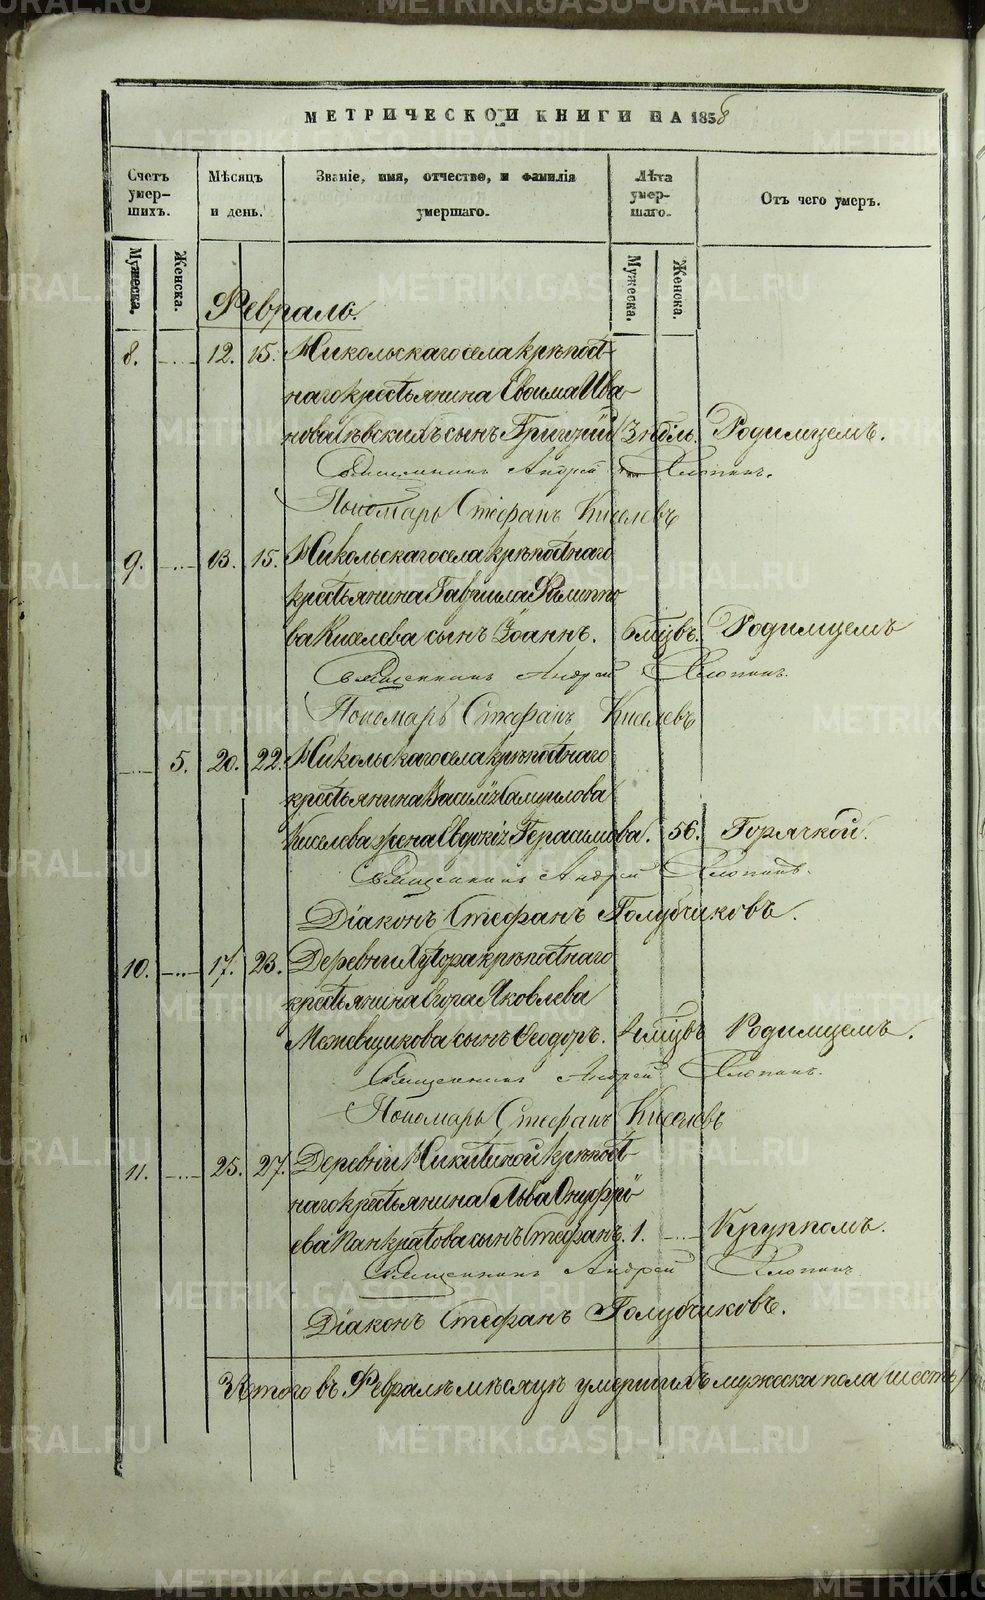 МЕТРИЧЕСКОЙ КНИГИ НА 1858
Счетъ умер-шихъ.
Мѣсяцъ и день.
Званіе, имя, отчество, и фамилія умершаго.
Лѣта умер-шаго.
Отъ чего умеръ.
Мужеска.
Женска.
Мужеска.
Женска.
Февраль.
8. 12. 15. Никольскаго села крѣпост-
наго крестьянина Евфима Ива-
нова сынъ Григорій 3 недѣль. Родимцемъ.
Священникъ Андрей Хлопинъ.
Пономарь Стефанъ Киселевъ
9. 13. 15. Никольскаго села крѣпостнаго
крестьянина Гавріила Филиппо
ва Киселева сынъ Іоаннъ. 6 мцвъ. Родимцемъ
Священникъ Андрей Хлопинъ.
Пономарь Стефанъ Киселевъ
5. 20. 22. Никольскаго села крѣпостнаго
крестьянина Василія Самуилова
Киселева жена Евдокія Герасимова. 56. Горячкой.
Священникъ Андрей Хлопинъ.
Діаконъ Стефанъ Голубчиковъ.
10. 17. 23. Деревни Хутора крѣпостнаго
крестьянина Егора Яковлева
Межевщикова сынъ Феодоръ. 4 мцвъ Родимцемъ.
Священникъ Андрей Хлопинъ.
Пономарь Стефанъ Киселевъ
11. 25. 27. Деревни Никитиной крѣпост-
наго крестьянина Льва Онуфрі-
ева Панкратова сынъ Стефанъ. 1. Круппомъ.
Священникъ Андрей Хлопинъ
Діаконъ Стефанъ Голубчиковъ.
Итого въ Февралѣ мѣсяцѣ умершихъ мужеска пола шесть
METRIKI.GASO-URAL.RU